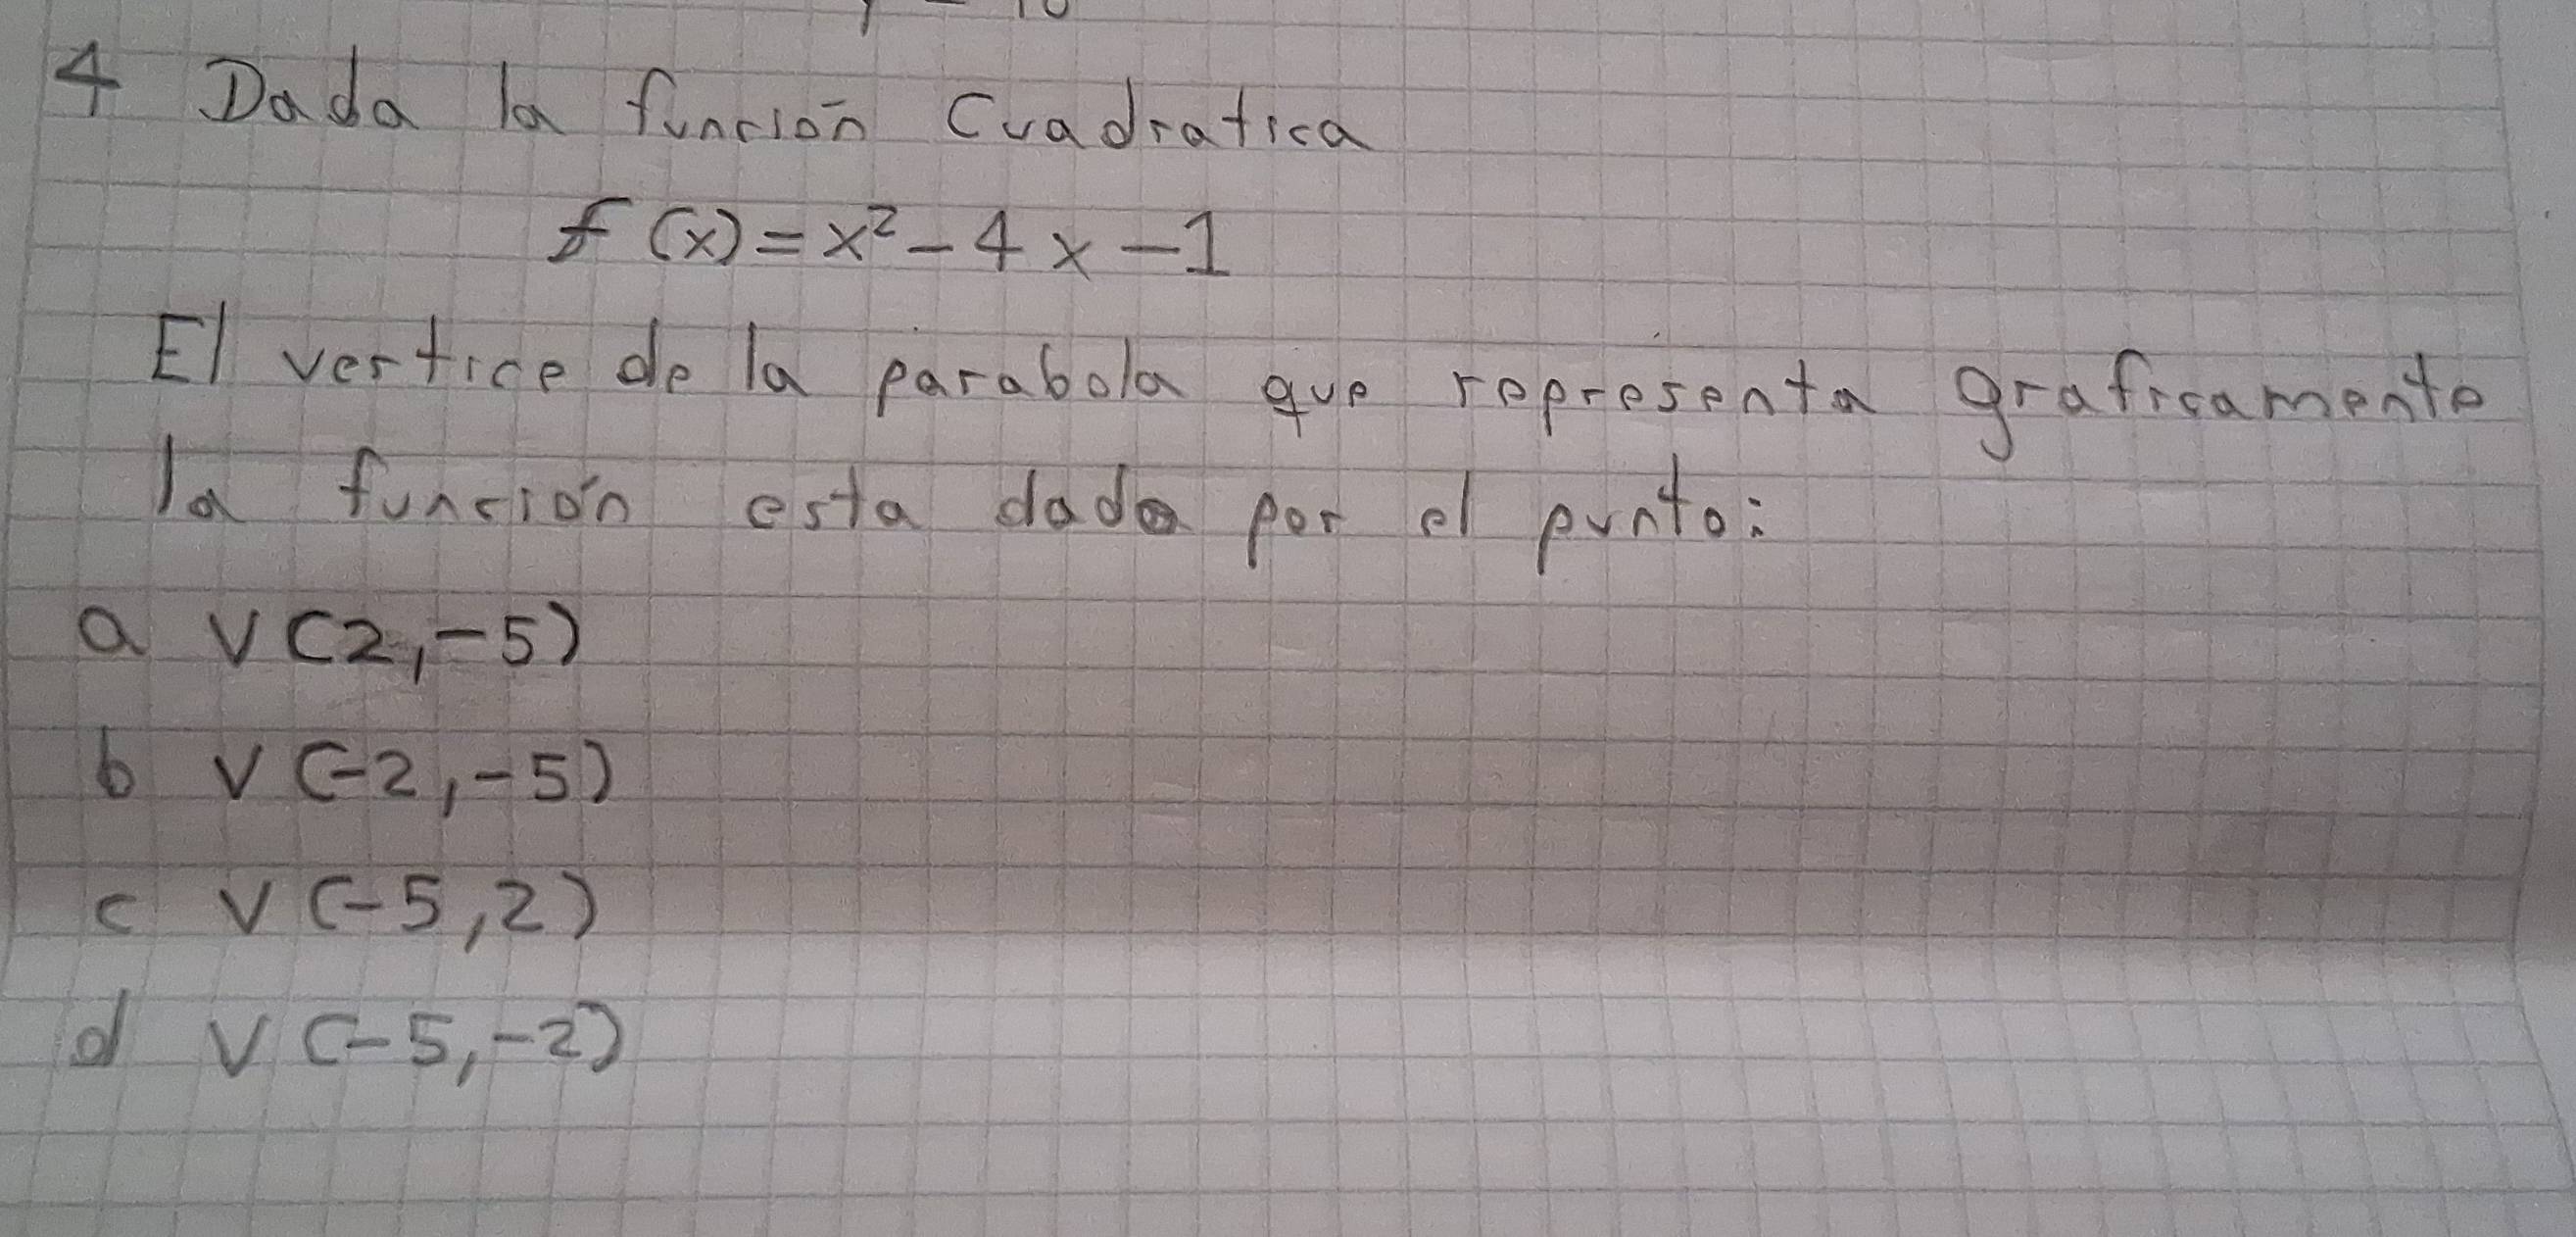 4 Dada la función Cuadratica
f (x) = x² - 4 x - 1
El vertice de la parabola que representa graficamente
la función esta dado por el punto:
a V (2, -5)
b V (-2, -5)
c V (-5, 2)
d V (-5, -2)